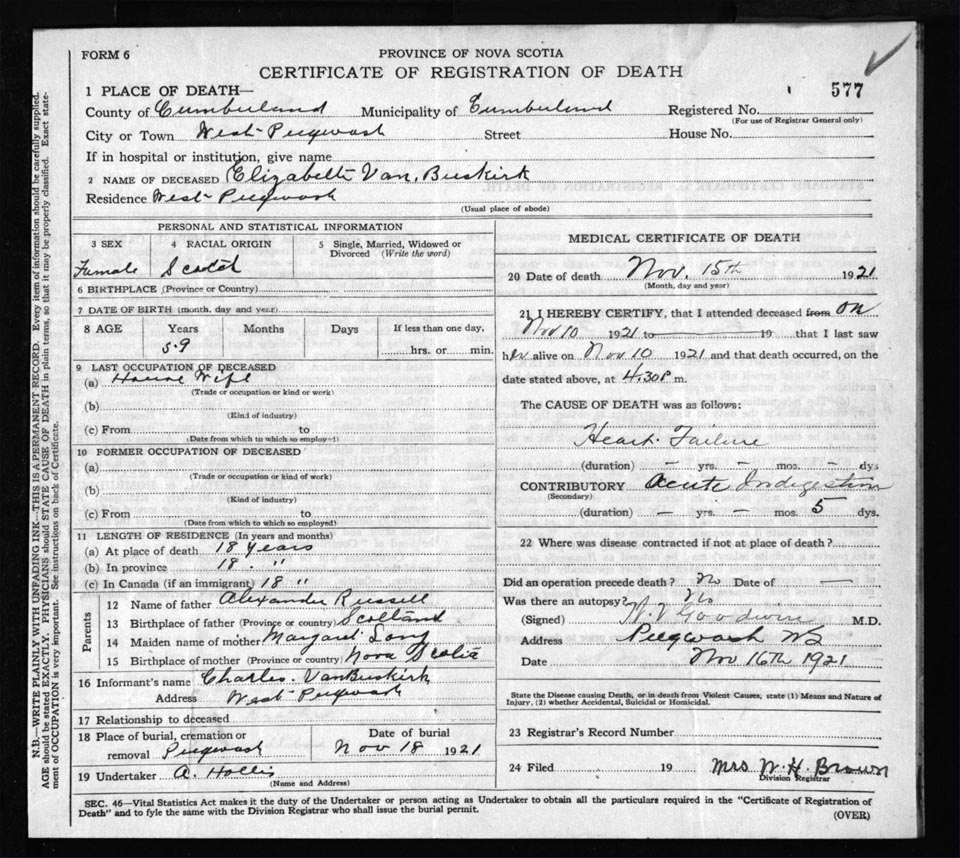 FORM 6
PROVINCE OF NOVA SCOTIA
CERTIFICATE OF REGISTRATION OF DEATH
577
1 PLACE OF DEATH—
County of Cumberland Municipality of Cumberland Registered No.
(For use of Registrar General only)
City or Town West Pugwash Street House No.
If in hospital or institution, give name
2 NAME OF DECEASED Elizabeth Van Buskirk
Residence West Pugwash
(Usual place of abode)
PERSONAL AND STATISTICAL INFORMATION
3 SEX 4 RACIAL ORIGIN 5 Single, Married, Widowed or Divorced (Write the word)
Female Scotch
6 BIRTHPLACE (Province or Country)
7 DATE OF BIRTH (month, day and year)
8 AGE Years Months Days If less than one day,
59 hrs. or min.
9 LAST OCCUPATION OF DECEASED
(a) House Wife
(Trade or occupation or kind or work)
(b)
(Kind of industry)
(c) From to
(Date from which to which so employ-d)
10 FORMER OCCUPATION OF DECEASED
(a)
(Trade or occupation or kind of work)
(b)
(Kind of industry)
(c) From to
(Date from which to which so employed)
11 LENGTH OF RESIDENCE (In years and months)
(a) At place of death 18 Years
(b) In province 18 "
(c) In Canada (if an immigrant) 18 "
Parents
12 Name of father Alexander Russell
13 Birthplace of father (Province or country) Scotland
14 Maiden name of mother Margaret Long
15 Birthplace of mother (Province or country) Nova Scotia
16 Informant's name Charles VanBuskirk
Address West Pugwash
17 Relationship to deceased
18 Place of burial, cremation or removal Pugwash
Date of burial
Nov 18 1921
19 Undertaker A. Hollis
(Name and Address)
MEDICAL CERTIFICATE OF DEATH
20 Date of death Nov. 15th 1921
(Month, day and year)
21 I HEREBY CERTIFY, that I attended deceased from on
Nov 10 1921 to 19 that I last saw
her alive on Nov 10 1921 and that death occurred, on the
date stated above, at 4.30 P m.
The CAUSE OF DEATH was as follows:
Heart Failure
(duration) — yrs. — mos. — dys
CONTRIBUTORY Acute Indigestion
(Secondary)
(duration) — yrs. — mos. 5 dys.
22 Where was disease contracted if not at place of death?
Did an operation precede death? No Date of —
Was there an autopsy? No
(Signed) Goodwin M.D.
Address Pugwash NS
Date Nov 16th 1921
State the Disease causing Death, or in death from Violent Causes, state (1) Means and Nature of
Injury, (2) whether Accidental, Suicidal or Homicidal.
23 Registrar's Record Number
24 Filed 19 Mrs W. H. Brown
Division Registrar
SEC. 46—Vital Statistics Act makes it the duty of the Undertaker or person acting as Undertaker to obtain all the particulars required in the "Certificate of Registration of
Death" and to fyle the same with the Division Registrar who shall issue the burial permit.
(OVER)
N.B.—WRITE PLAINLY WITH UNFADING INK—THIS IS A PERMANENT RECORD. Every item of information should be carefully supplied.
AGE should be stated EXACTLY. PHYSICIANS should STATE CAUSE OF DEATH in plain terms, so that it may be properly classified. Exact state-
ment of OCCUPATION is very important. See instructions on back of Certificate.